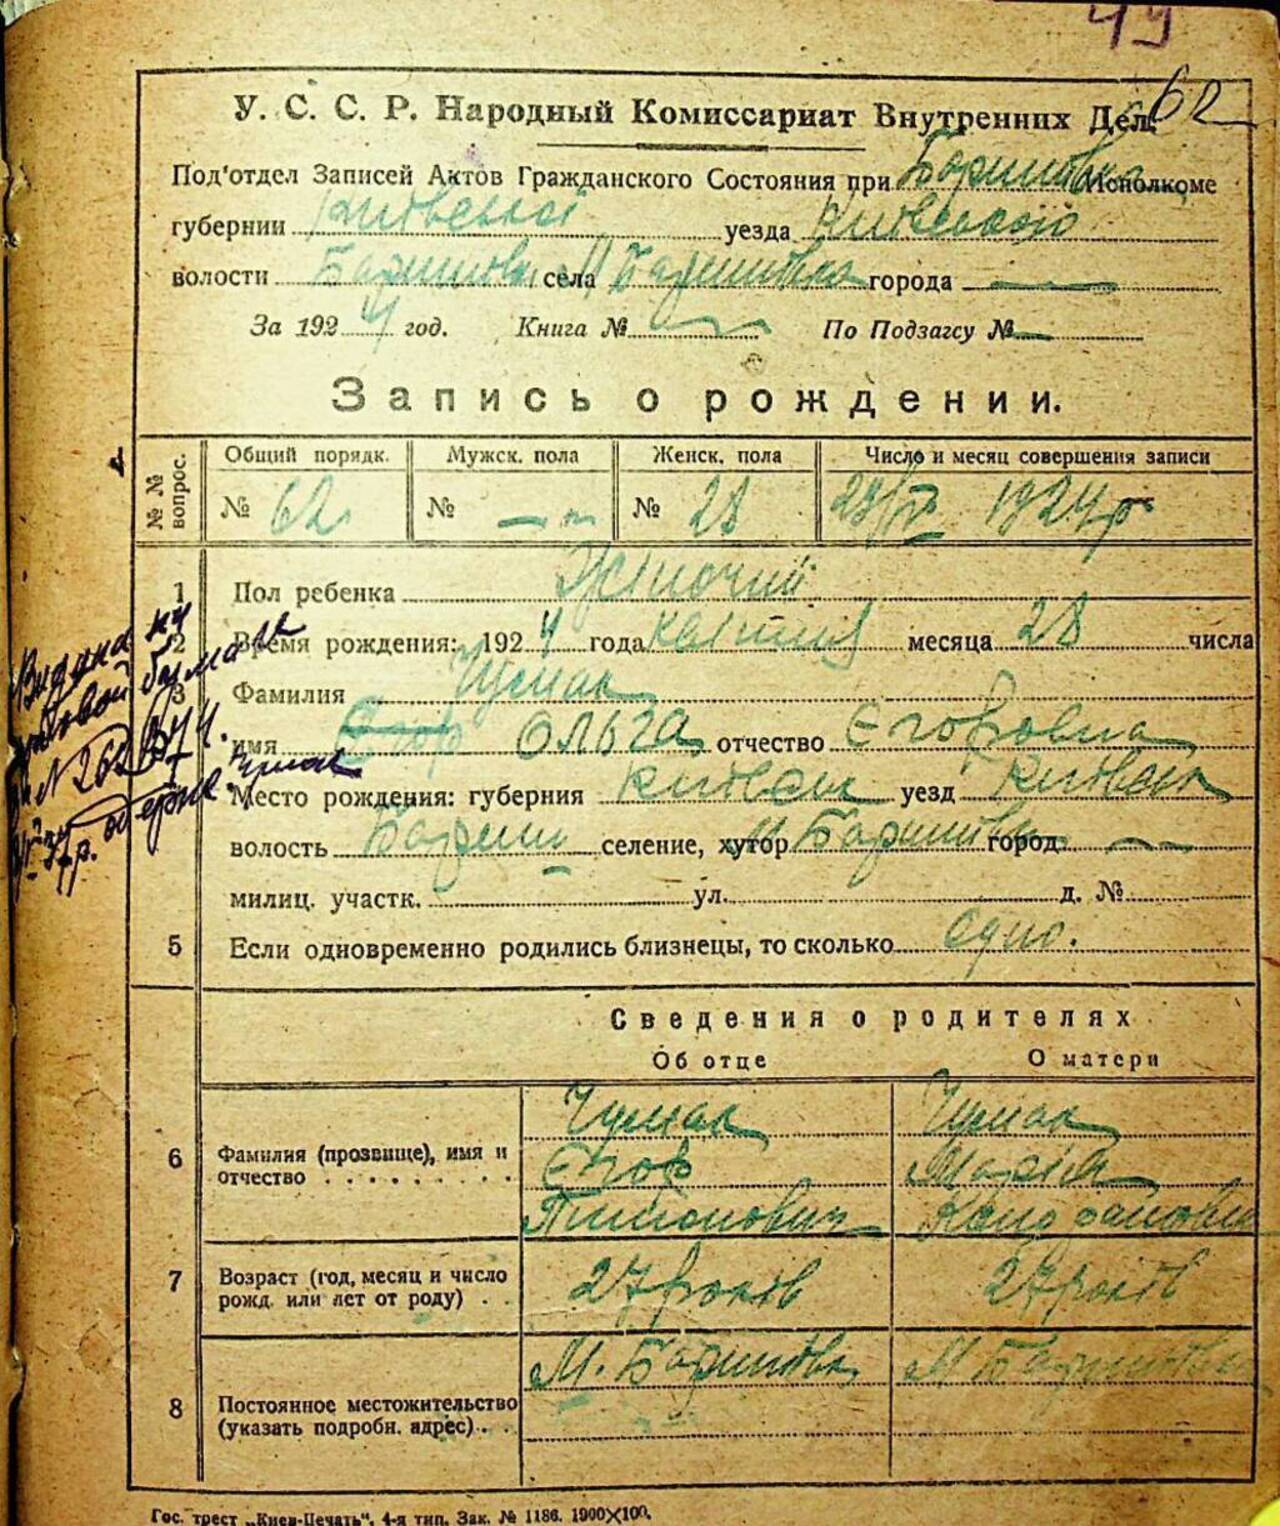 49
62
У. С. С. Р. Народный Комиссариат Внутренних Дел.
Под'отдел Записей Актов Гражданского Состояния при Баришівка Исполкоме
губернии Київської уезда Київського
волости Баришівк. села М. Баришівка города —
За 1924 год. Книга № — По Подзагсу № —
Запись о рождении.
№ № вопрос. Общий порядк. Мужск. пола Женск. пола Число и месяц совершения записи
№ 62 № — № 28 29/IV 1924 р
1 Пол ребенка Жіночий
2 Время рождения: 1924 года квітня месяца 28 числа
3 Фамилия Чумак
имя Ольга отчество Єгоровна
Место рождения: губерния Київськ уезд Київськ
волость Бариш селение, хутор М. Баришівка город —
милиц. участк. ул. д. №
5 Если одновременно родились близнецы, то сколько Одно.
Сведения о родителях
Об отце О матери
6 Фамилия (прозвище), имя и отчество
Чумак Чумак
Єгор Марія
7 Возраст (год, месяц и число рожд. или лет от роду) 27 років 27 років
8 Постоянное местожительство (указать подробн. адрес) М. Баришівка М. Баришівка
Гос. трест „Киев-Печать", 4-я тип. Зак. № 1186. 1900×100.